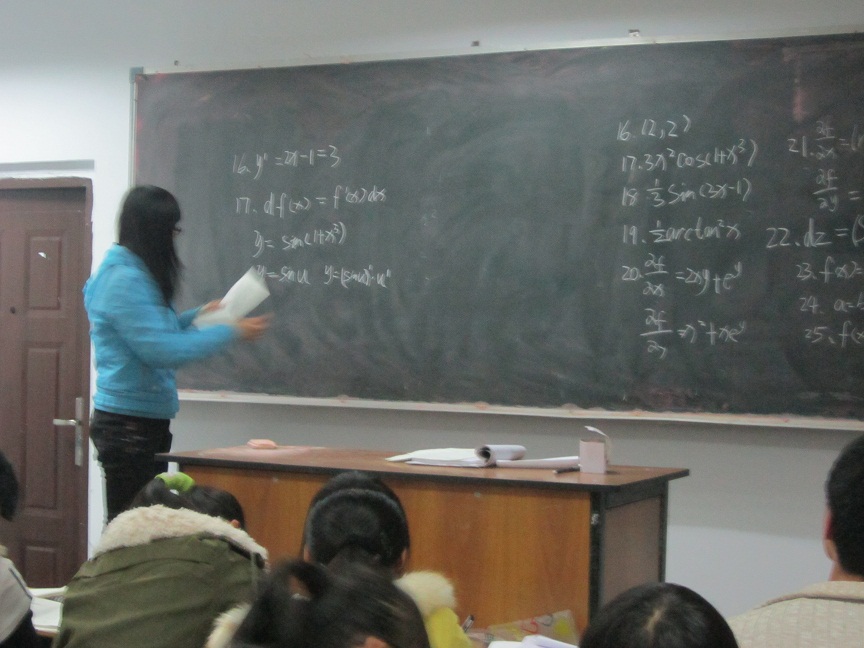 16. y' = 2x-1 = 3
17. df(x) = f'(x)dx
y = sin(1+x³)
y = sin u y = (sin u)'·u'
16. (2,2)
17. 3x²cos(1+x³)
18 ⅓ sin(3x-1)
19. ½ arctan²x
20. ∂f/∂x = 2xy+e^y
∂f/∂y = x²+xe^y
21. ∂f/∂x =
∂f/∂y =
22. dz =
23. f(x)
24. a=
25. f(